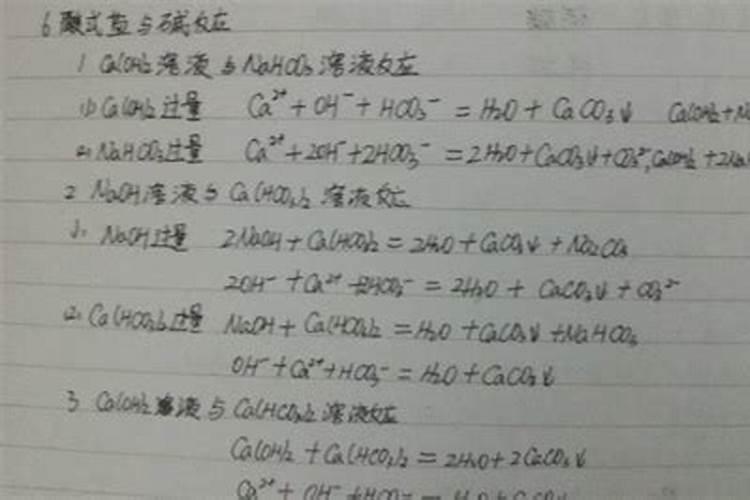 6 酸式盐与碱反应
1 Ca(OH)₂溶液与NaHCO₃溶液反应
(1) Ca(OH)₂过量 Ca²⁺+OH⁻+HCO₃⁻=H₂O+CaCO₃↓ Ca(OH)₂+Na
(2) NaHCO₃过量 Ca²⁺+2OH⁻+2HCO₃⁻=2H₂O+CaCO₃↓+CO₃²⁻, Ca(OH)₂+2Na
2 NaOH溶液与Ca(HCO₃)₂溶液反应
(1). NaOH过量 2NaOH+Ca(HCO₃)₂=2H₂O+CaCO₃↓+Na₂CO₃
2OH⁻+Ca²⁺+2HCO₃⁻=2H₂O+CaCO₃↓+CO₃²⁻
(2). Ca(HCO₃)₂过量 NaOH+Ca(HCO₃)₂=H₂O+CaCO₃↓+NaHCO₃
OH⁻+Ca²⁺+HCO₃⁻=H₂O+CaCO₃↓
3 Ca(OH)₂溶液与Ca(HCO₃)₂溶液反应
Ca(OH)₂+Ca(HCO₃)₂=2H₂O+2CaCO₃↓
Ca²⁺+OH⁻+HCO₃⁻=H₂O+CaCO₃↓